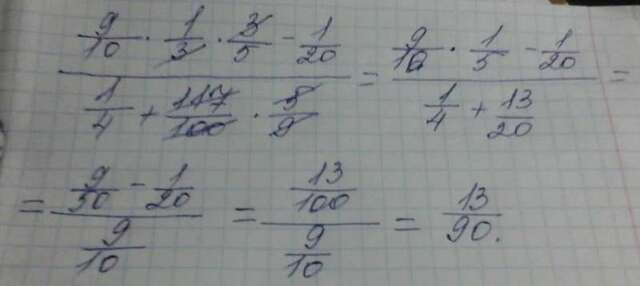 9/10 · 1/3 · 3/5 - 1/20 / 1/4 + 117/100 · 5/9 = 9/10 · 1/5 - 1/20 / 1/4 + 13/20 =
= 9/50 - 1/20 / 9/10 = 13/100 / 9/10 = 13/90.